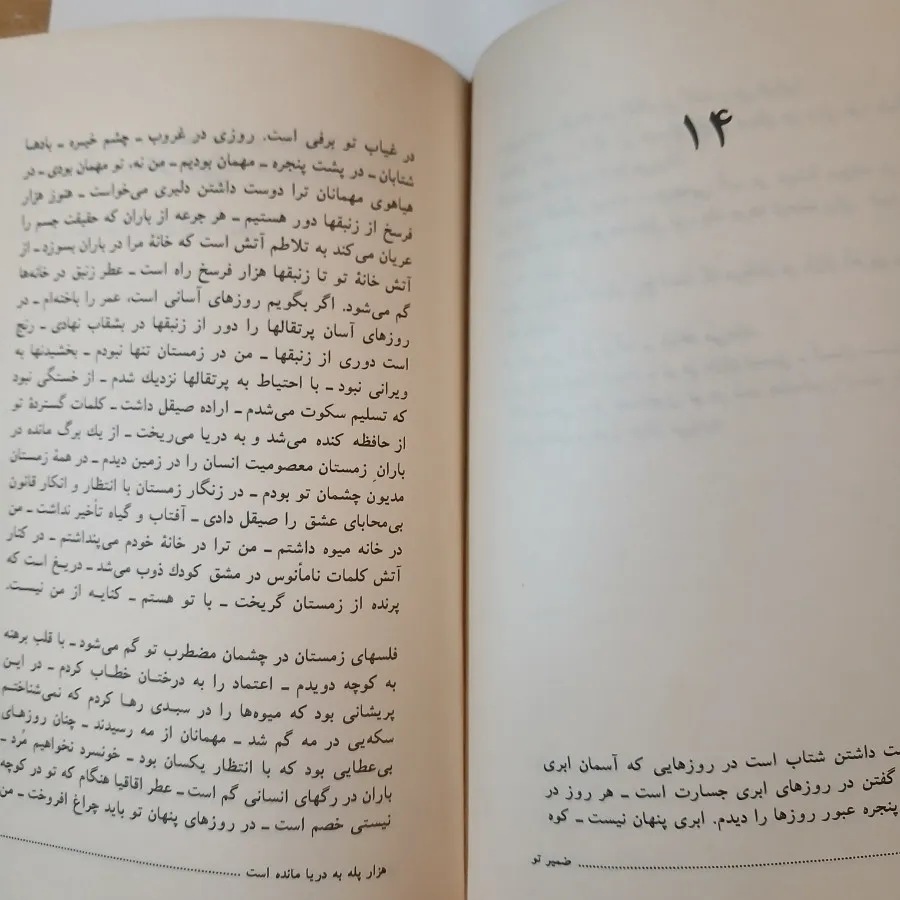 ۱۴
ت داشتن شتاب است در روزهایی که آسمان ابری
گفتن در روزهای ابری جسارت است ــ هر روز در
پنجره عبور روزها را دیدم. ابری پنهان نیست ــ کوه
ضمیر تو
در غیاب تو برفی است. روزی در غروب ــ چشم خیره ــ بادها
شتابان ــ در پشت پنجره ــ مهمان بودیم ــ من نه، تو مهمان بودی ــ در
هیاهوی مهمانان ترا دوست داشتن دلیری می‌خواست ــ هنوز هزار
فرسخ از زنبقها دور هستیم ــ هر جرعه از باران که حقیقت جسم را
عریان می‌کند به تلاطم آتش است که خانهٔ مرا در باران بسوزد ــ از
آتش خانهٔ تو تا زنبقها هزار فرسخ راه است ــ عطر زنبق در خانه‌ها
گم می‌شود. اگر بگویم روزهای آسانی است، عمر را باخته‌ام ــ در
روزهای آسان پرتقالها را دور از زنبقها در بشقاب نهادی ــ رنج
است دوری از زنبقها ــ من در زمستان تنها نبودم ــ بخشیدنها به
ویرانی نبود ــ با احتیاط به پرتقالها نزدیك شدم ــ از خستگی نبود
که تسلیم سکوت می‌شدم ــ اراده صیقل داشت ــ کلمات گستردهٔ تو
از حافظه کنده می‌شد و به دریا می‌ریخت ــ از یك برگ مانده در
بارانِ زمستان معصومیت انسان را در زمین دیدم ــ در همهٔ زمستان
مدیون چشمان تو بودم ــ در زنگار زمستان با انتظار و انکار قانون
بی‌محابای عشق را صیقل دادی ــ آفتاب و گیاه تأخیر نداشت ــ من
در خانه میوه داشتم ــ من ترا در خانهٔ خودم می‌پنداشتم ــ در کنار
آتش کلمات نامأنوس در مشق کودك ذوب می‌شد ــ دریغ است که
پرنده از زمستان گریخت ــ با تو هستم ــ کنایه از من نیست.
فلسهای زمستان در چشمان مضطرب تو گم می‌شود ــ با قلب برهنه
به کوچه دویدم ــ اعتماد را به درختان خطاب کردم ــ در این
پریشانی بود که میوه‌ها را در سبدی رها کردم که نمی‌شناختم
سکه‌یی در مه گم شد ــ مهمانان از مه رسیدند ــ چنان روزهای
بی‌عطایی بود که با انتظار یکسان بود ــ خونسرد نخواهیم مُرد ــ
باران در رگهای انسانی گم است ــ عطر اقاقیا هنگام که تو در کوچه
نیستی خصم است ــ در روزهای پنهان تو باید چراغ افروخت ــ من
هزار پله به دریا مانده است